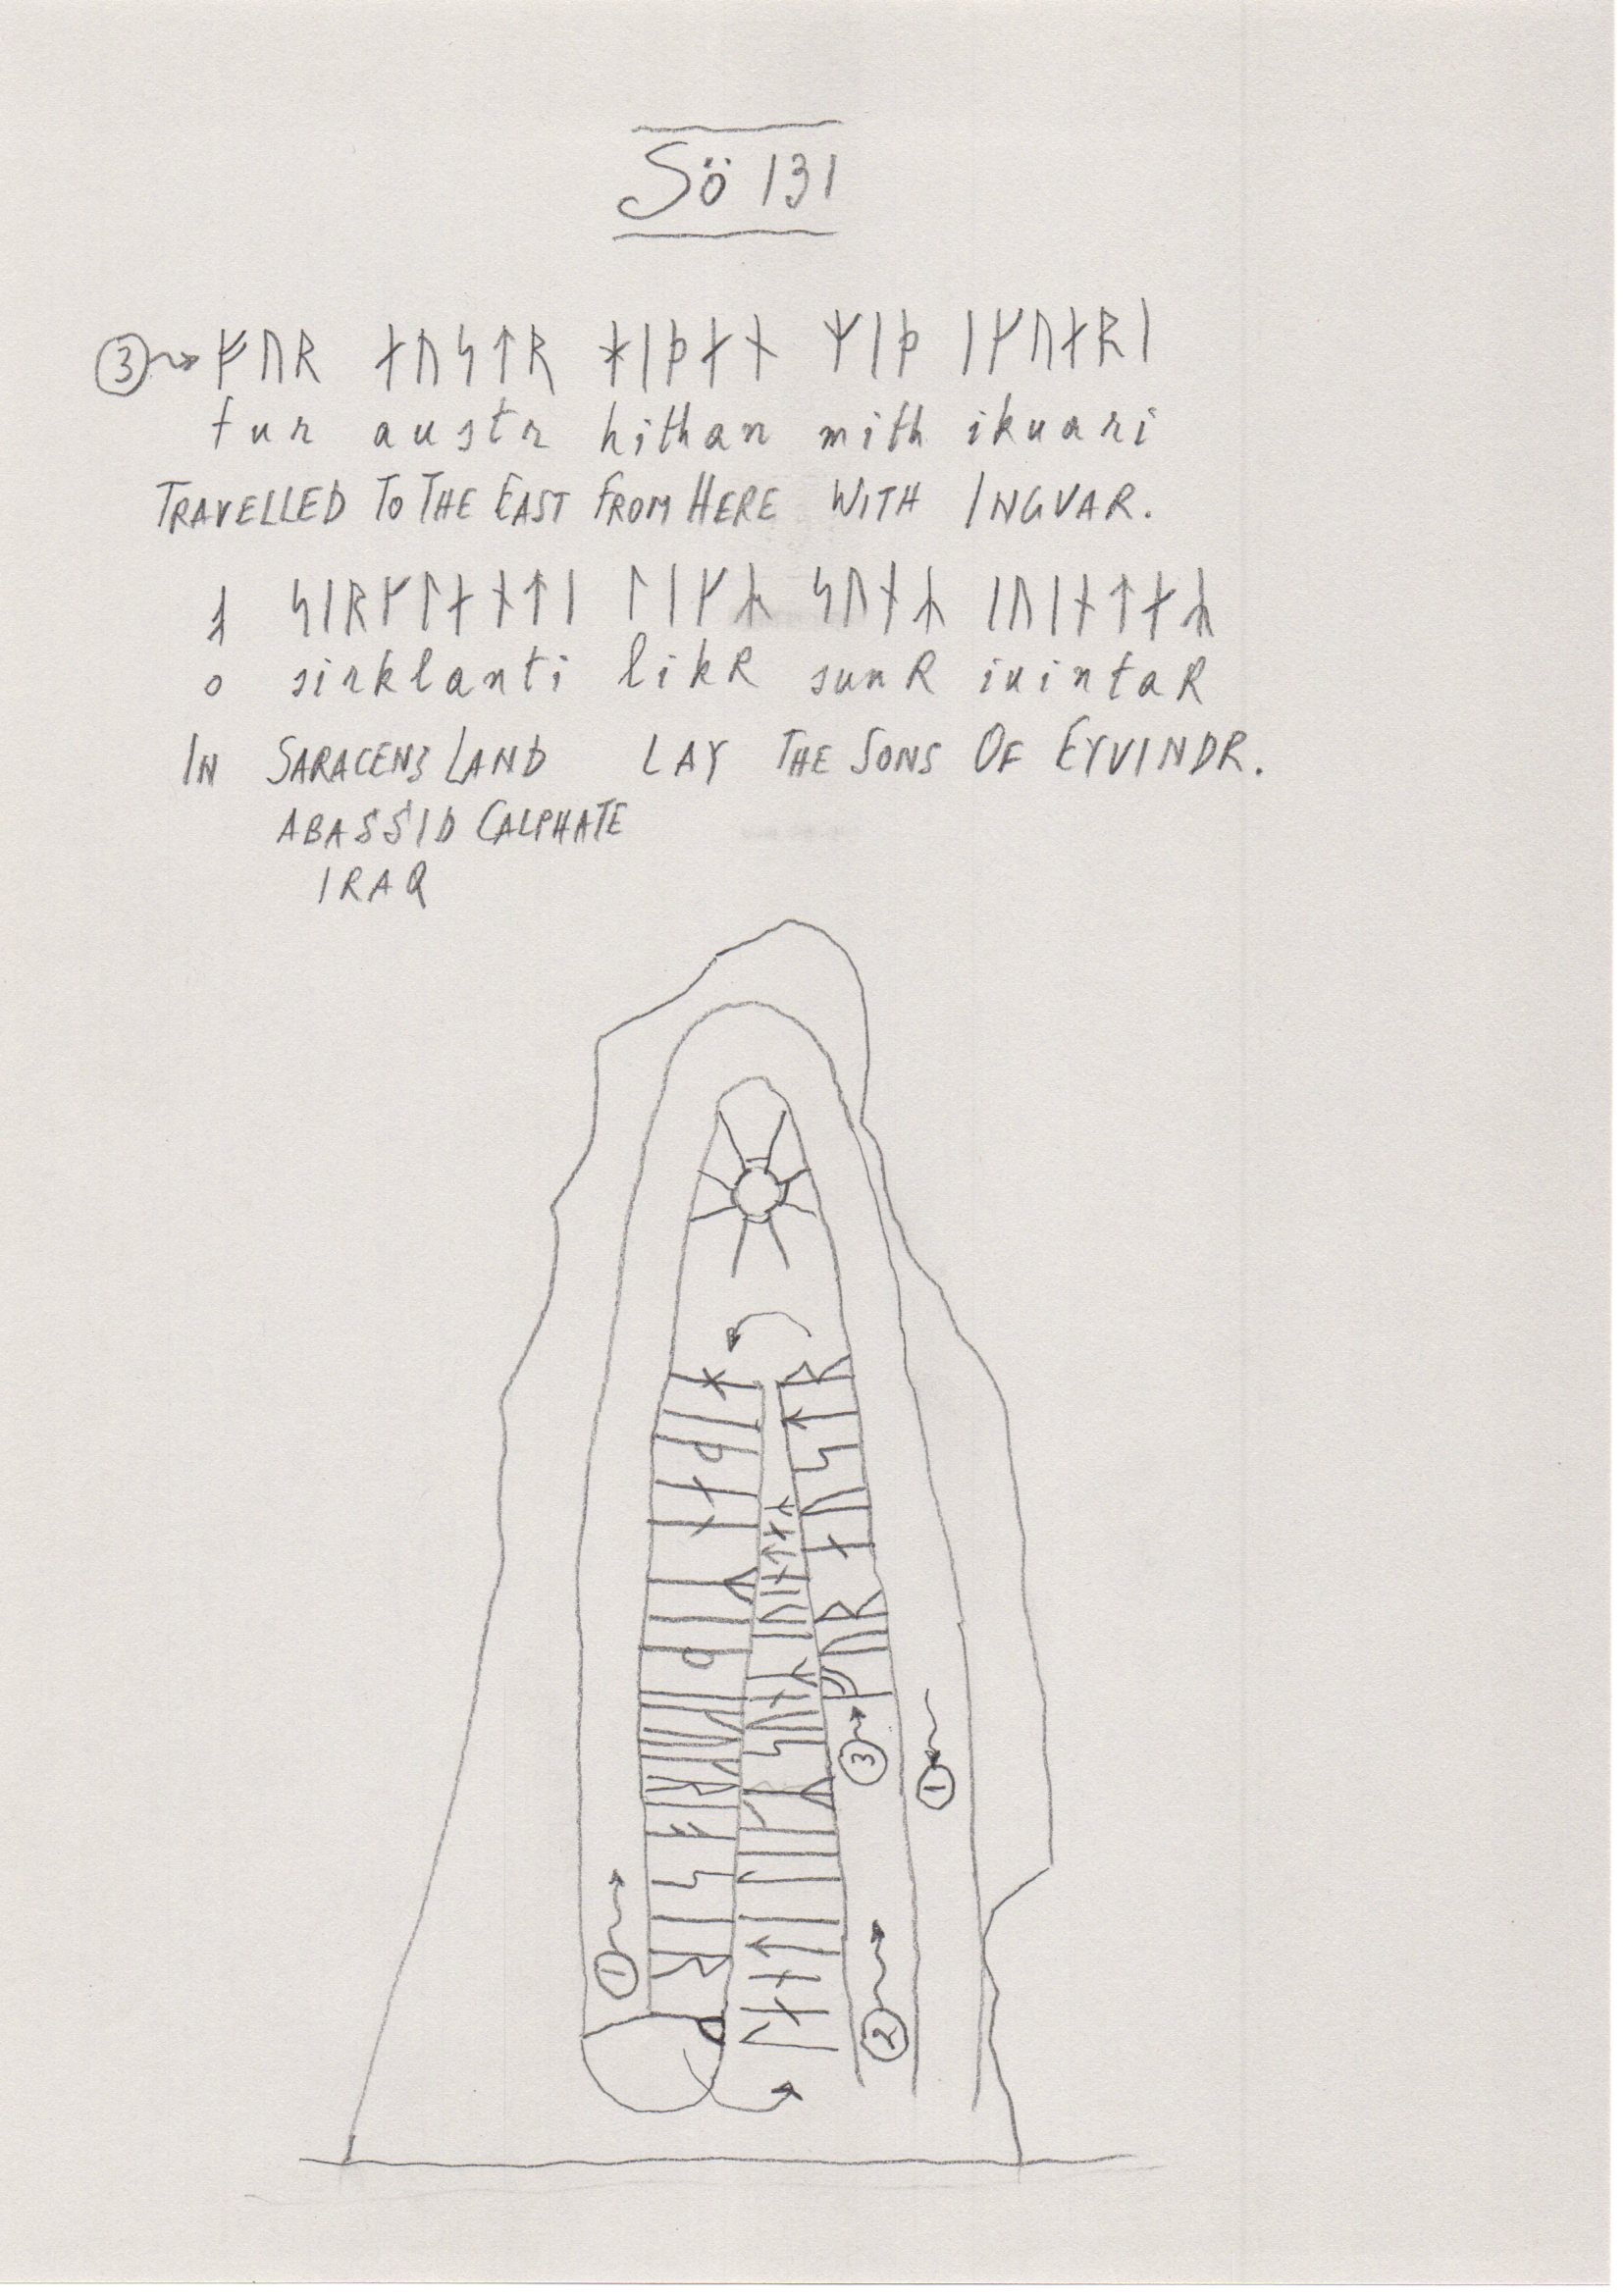 Sö 131
③ ᚠᚢᚱ ᛅᚢᛋᛏᚱ ᚼᛁᚦᛅᚾ ᛘᛁᚦ ᛁᚴᚢᛅᚱᛁ
fur austr hithan mith ikuari
TRAVELLED TO THE EAST FROM HERE WITH INGVAR.
ᚮ ᛋᛁᚱᚴᛚᛅᚾᛏᛁ ᛚᛁᚴᛦ ᛋᚢᚾᛦ ᛁᚢᛁᚾᛏᛅᛦ
o sirklanti likR sunR iuintaR
IN SARACENS LAND LAY THE SONS OF EYVINDR.
ABASSID CALPHATE
IRAQ
③ ᚠᚢᚱ ᛅᚢᛋᛏᚱ
ᚼᛁᚦᛅᚾ ᛘᛁᚦ
ᛚᛅᚾᛏᛁ ᛚᛁᚴᛦ ᛋᚢᚾᛦ ᛁᚢᛁᚾᛏᛅᛦ
①
①
②